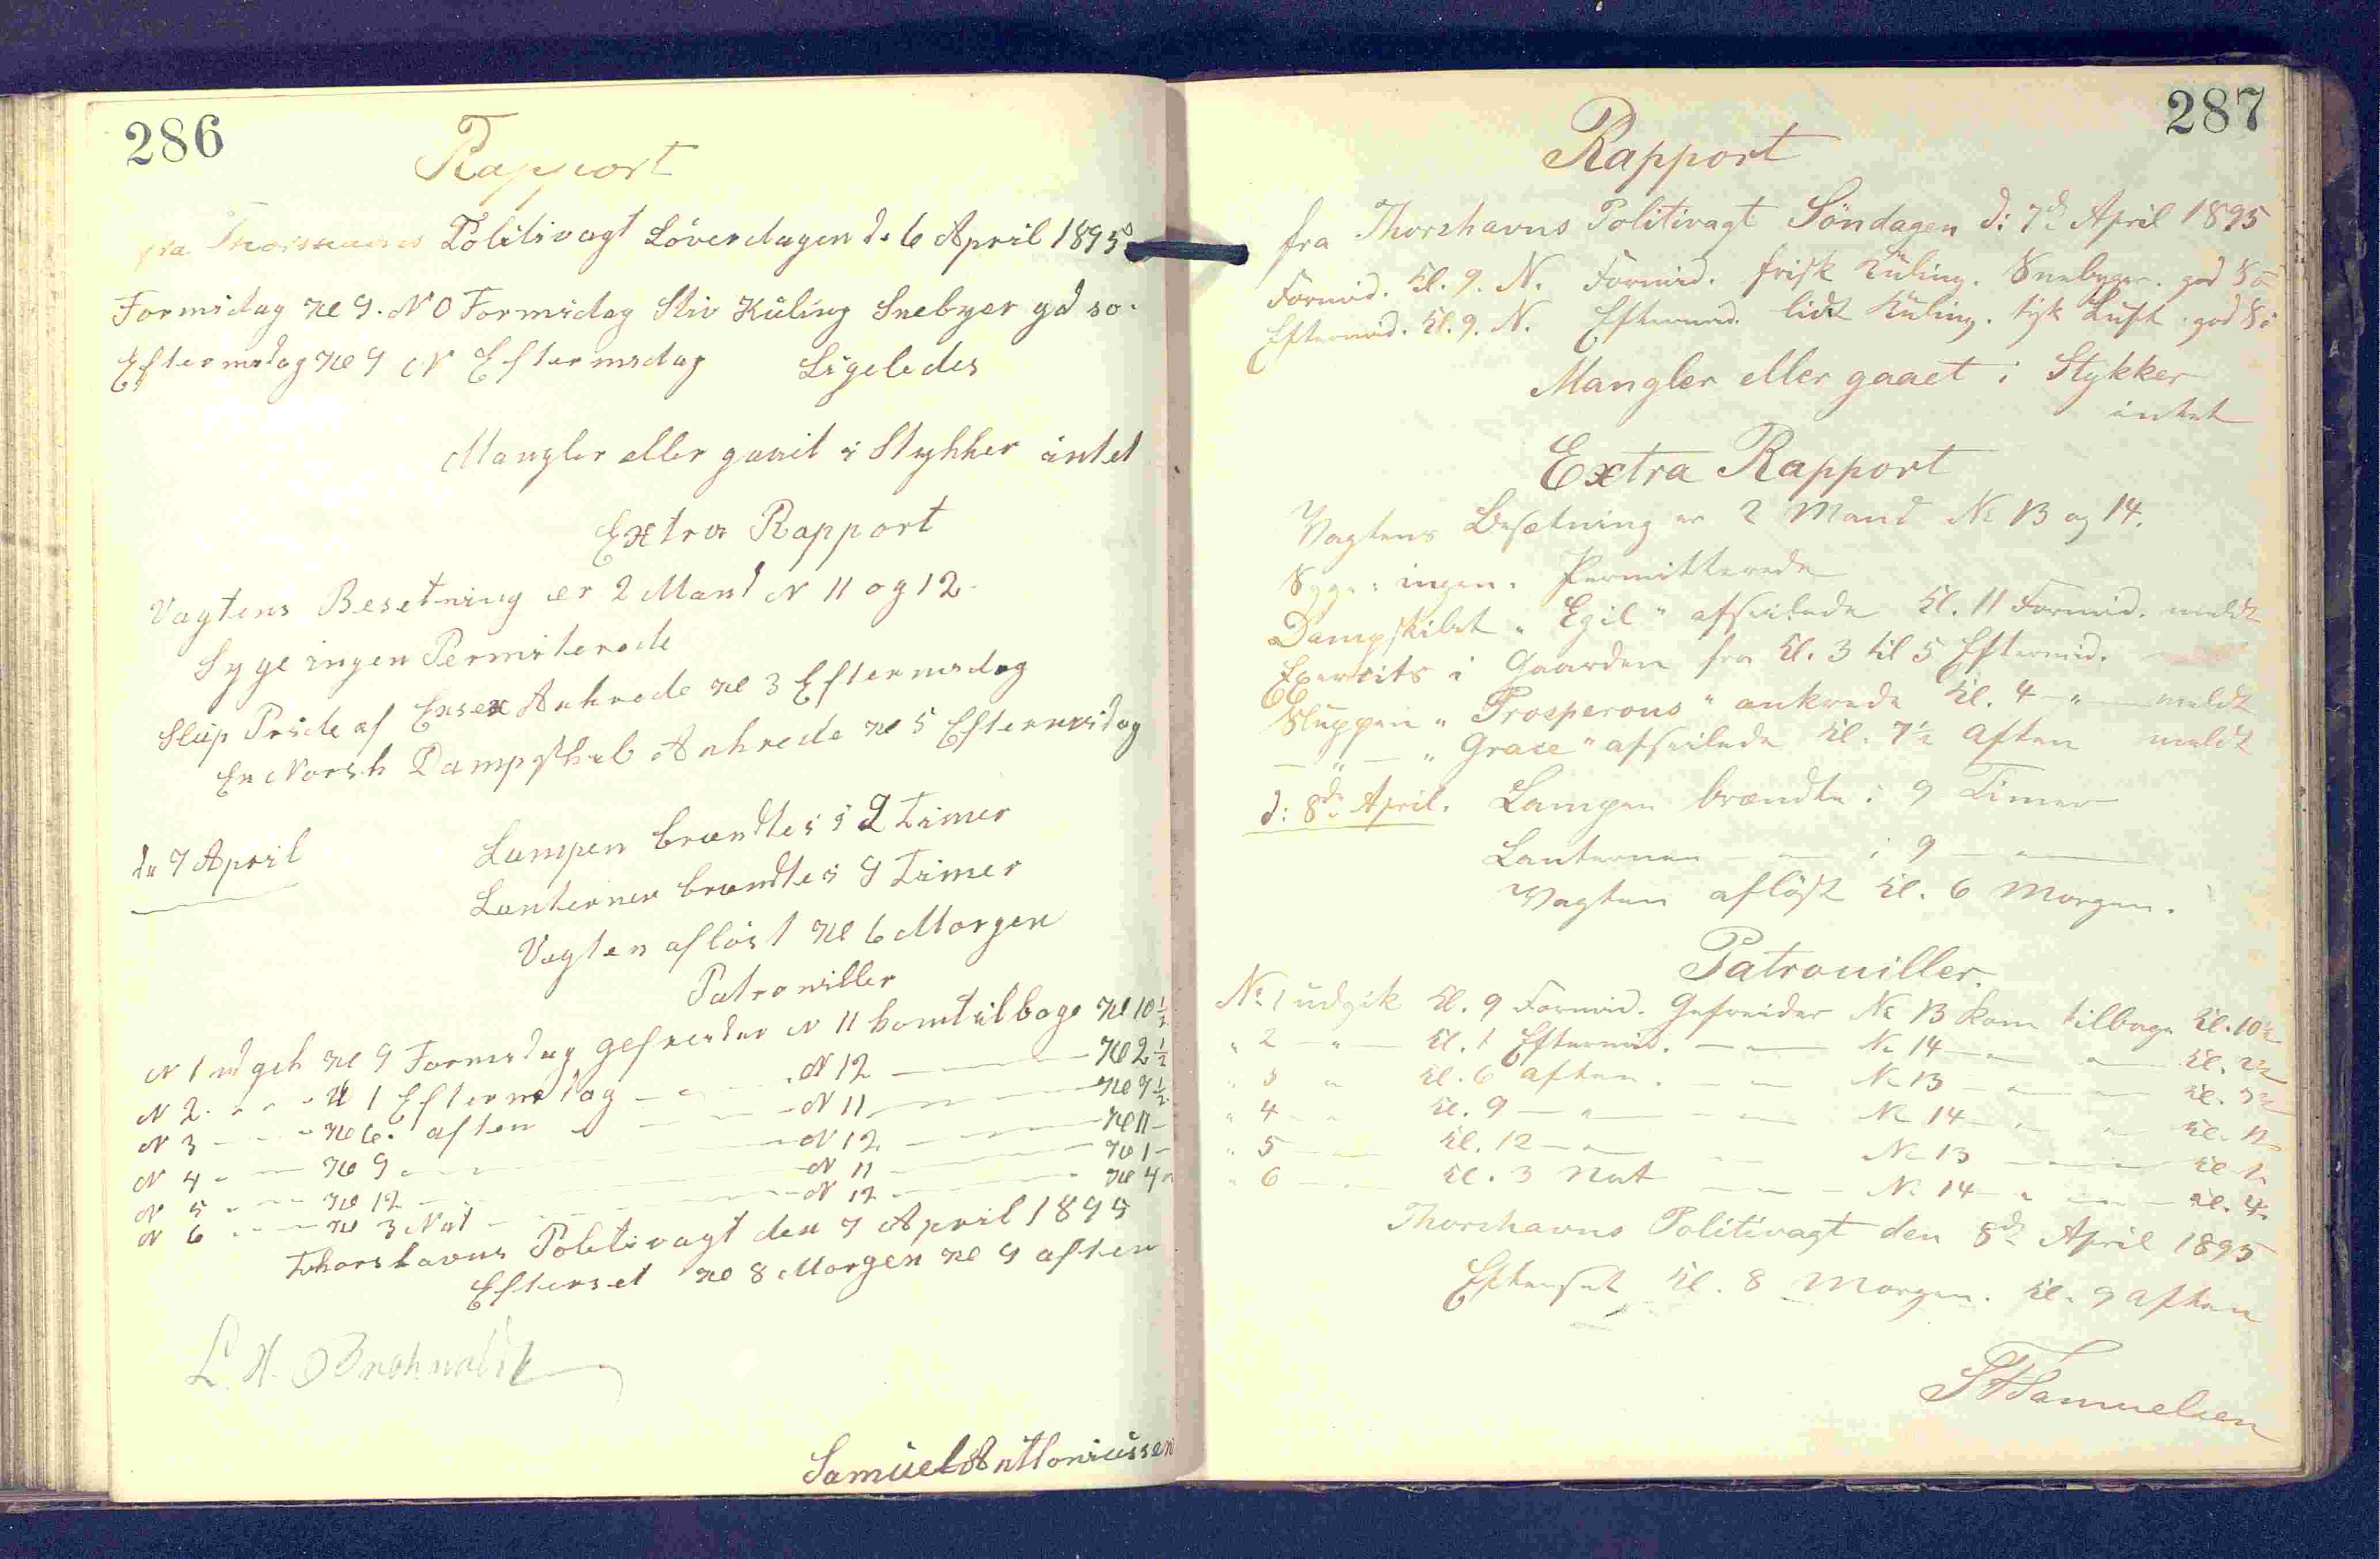 286
Rapport
fra Thorshavns Politivagt Løverdagen d. 6 April 1895
Formidag Kl 9. N O Formidag Stiv Küling Snebyer gd so.
Eftermidag Kl 9 N Eftermidag Ligeledes
Mangler eller gaait i Stykker intet
Extra Rapport
Vagtens Besetning er 2 Mand N 11 og 12.
Syge ingen Permiterede
Slup Pride af Essex Ankrede Kl 3 Eftermidag
En Norsk Dampskib Ankrede Kl 5 Eftermidag
dn 7 April Lampen brændte i 9 Timer
Lanternen brændte i 9 Timer
Vagten afløst Kl 6 Morgen
Patrouiller
N 1 udgik Kl 9 Formidag gefreider N 11 kom tilbage Kl 10½
N 2 Kl 1 Eftermidag N 12 Kl 2½
N 3 Kl 6. aften N 11 Kl 7½
N 4 Kl 9 N 12 Kl 11
N 5 Kl 12 N 11 Kl 1
N 6 Kl 3 Nat N 12 Kl 4
Thorshavns Politivagt den 7 April 1895
Efterset Kl 8 Morgen Kl 9 aften
L. H.
Samuel Anthoniussen
287
Rapport
fra Thorshavns Politivagt Söndagen d: 7d April 1895
Formid. Kl. 9. N. Formid. frisk Küling. Snebyger. god Sö
Eftermid. Kl. 9. N. Eftermid. lidt Küling. tyk Luft. god Sö
Mangler eller gaaet i Stykker
intet
Extra Rapport
Vagtens Besætning er 2 Mand No 13 og 14.
Syge: ingen. Permitterede
Dampskibet "Egil" afseilede Kl. 11 Formid. meldt
Exercits i Gaarden fra Kl. 3 til 5 Eftermid.
Sluppen "Prosperous" ankrede Kl. 4 — " — meldt
— " — "Grace" afseilede Kl. 7½ Aften meldt
d: 8de April. Lampen brændte i 9 Timer
Lanternen — " — i 9 — " —
Vagten aflöst Kl. 6 Morgen.
Patrouiller.
No 1 udgik Kl. 9 Formid. Gefreider No 13 kom tilbage Kl. 10½
" 2 — " — Kl. 1 Eftermid. — " — No 14 — " — Kl. 2½
" 3 " Kl. 6 Aften. — " — No 13 — " — Kl. 7½
" 4 " Kl. 9 — " — No 14 — " — Kl. 11
" 5 — " Kl. 12 — " — No 13 — " — Kl. 1
" 6 — " Kl. 3 Nat — " — No 14 — " — Kl. 4
Thorshavns Politivagt den 8de April 1895
Efterset Kl. 8 Morgen. Kl. 9 Aften
Samuelsen